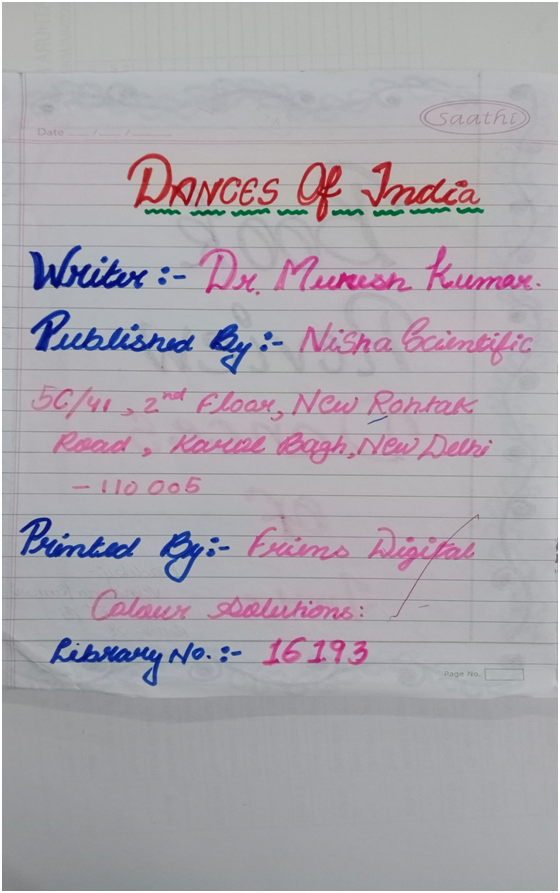 saathi
Date ___/___/______
DANCES Of India
Writer :- Dr. Mukesh Kumar.
Published By :- Nisha Scientific
5C/41, 2nd Floor, New Rohtak
Road, Karol Bagh, New Delhi
- 110 005
Printed By :- Friens Digital
Colour Solutions:
Library No. :- 16193
Page No.